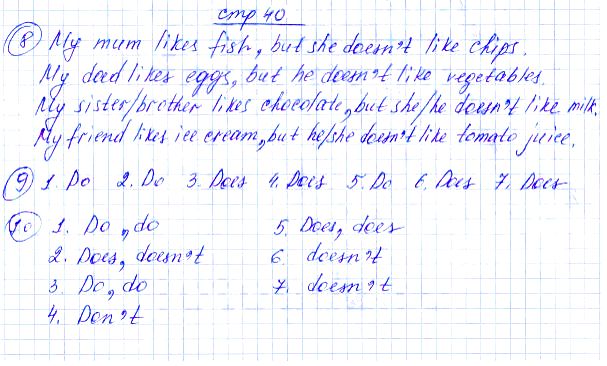 стр 40
8 My mum likes fish, but she doesn't like chips.
My dad likes eggs, but he doesn't like vegetables.
My sister/brother likes chocolate, but she/he doesn't like milk.
My friend likes ice cream, but he/she doesn't like tomato juice.
9 1. Do 2. Do 3. Does 4. Does 5. Do 6. Does 7. Does
10 1. Do, do 5. Does, does
2. Does, doesn't 6. doesn't
3. Do, do 7. doesn't
4. Don't